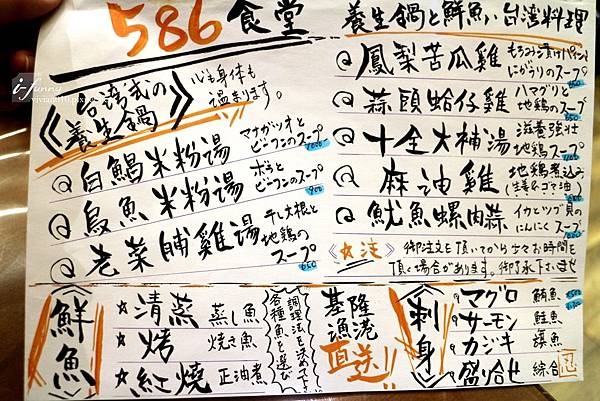 586食堂
養生鍋と鮮魚い台湾料理
i-funny
《台湾式の養生鍋》
心も身体も
温まります。
白鯧米粉湯 マナガツオとビーフンのスープ
烏魚米粉湯 ボラとビーフンのスープ 900
老菜脯雞湯 干し大根と地鶏のスープ 650
鳳梨苦瓜雞 もろみ漬けパインとにがうりのスープ
蒜頭蛤仔雞 ハマグリと地鶏のスープ 650
十全大補湯 滋養強壮地鶏スープ
麻油雞 地鶏煮込み(生姜&ゴマ油)
魷魚螺肉蒜 イカとツブ貝のにんにくスープ
《☆注》御注文を頂いてから少々お時間を
頂く場合があります。御了承下さいませ
《鮮魚》
☆清蒸 蒸し魚
☆烤 焼き魚
☆紅燒 正油煮
各種魚を選び
調理法を決めて下さい
基隆漁港
直送!!
《刺身》
マグロ 鮪魚
サーモン 鮭魚
カジキ 旗魚
盛り合せ 綜合
忍